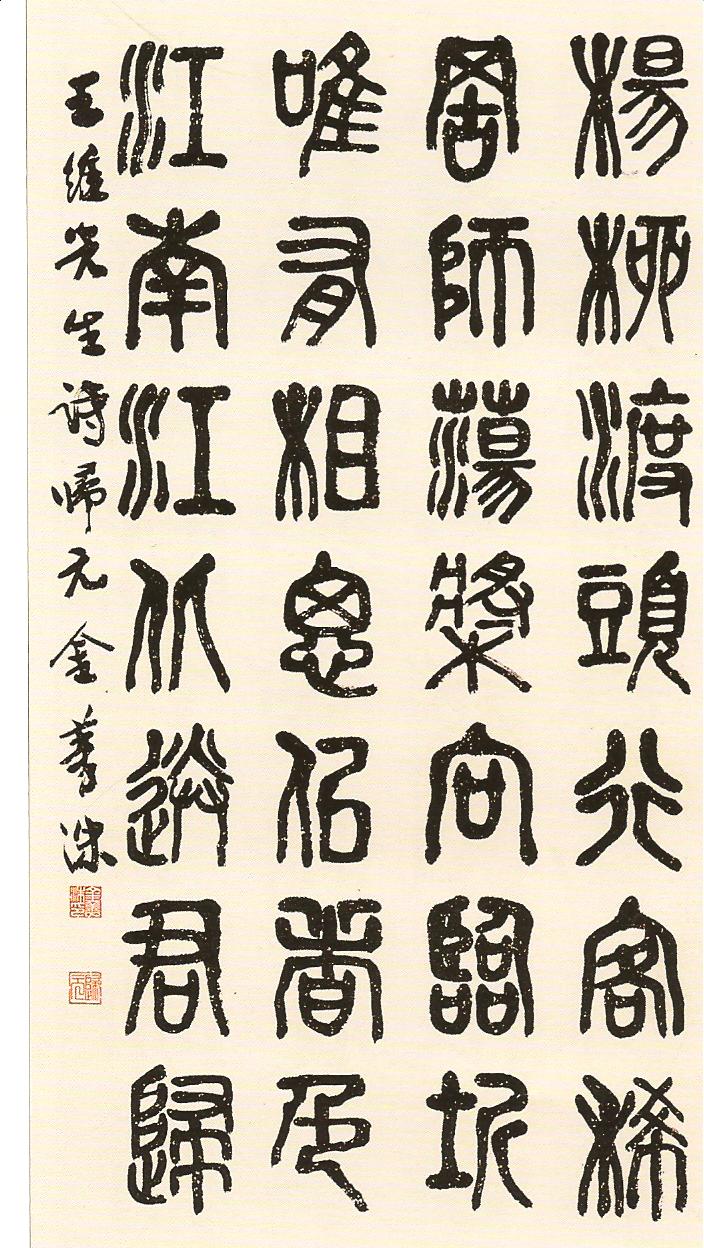 楊柳渡頭行客稀
罟師蕩槳向臨圻
唯有相思似春色
江南江北送君歸
王維先生詩 帰元金膺洙